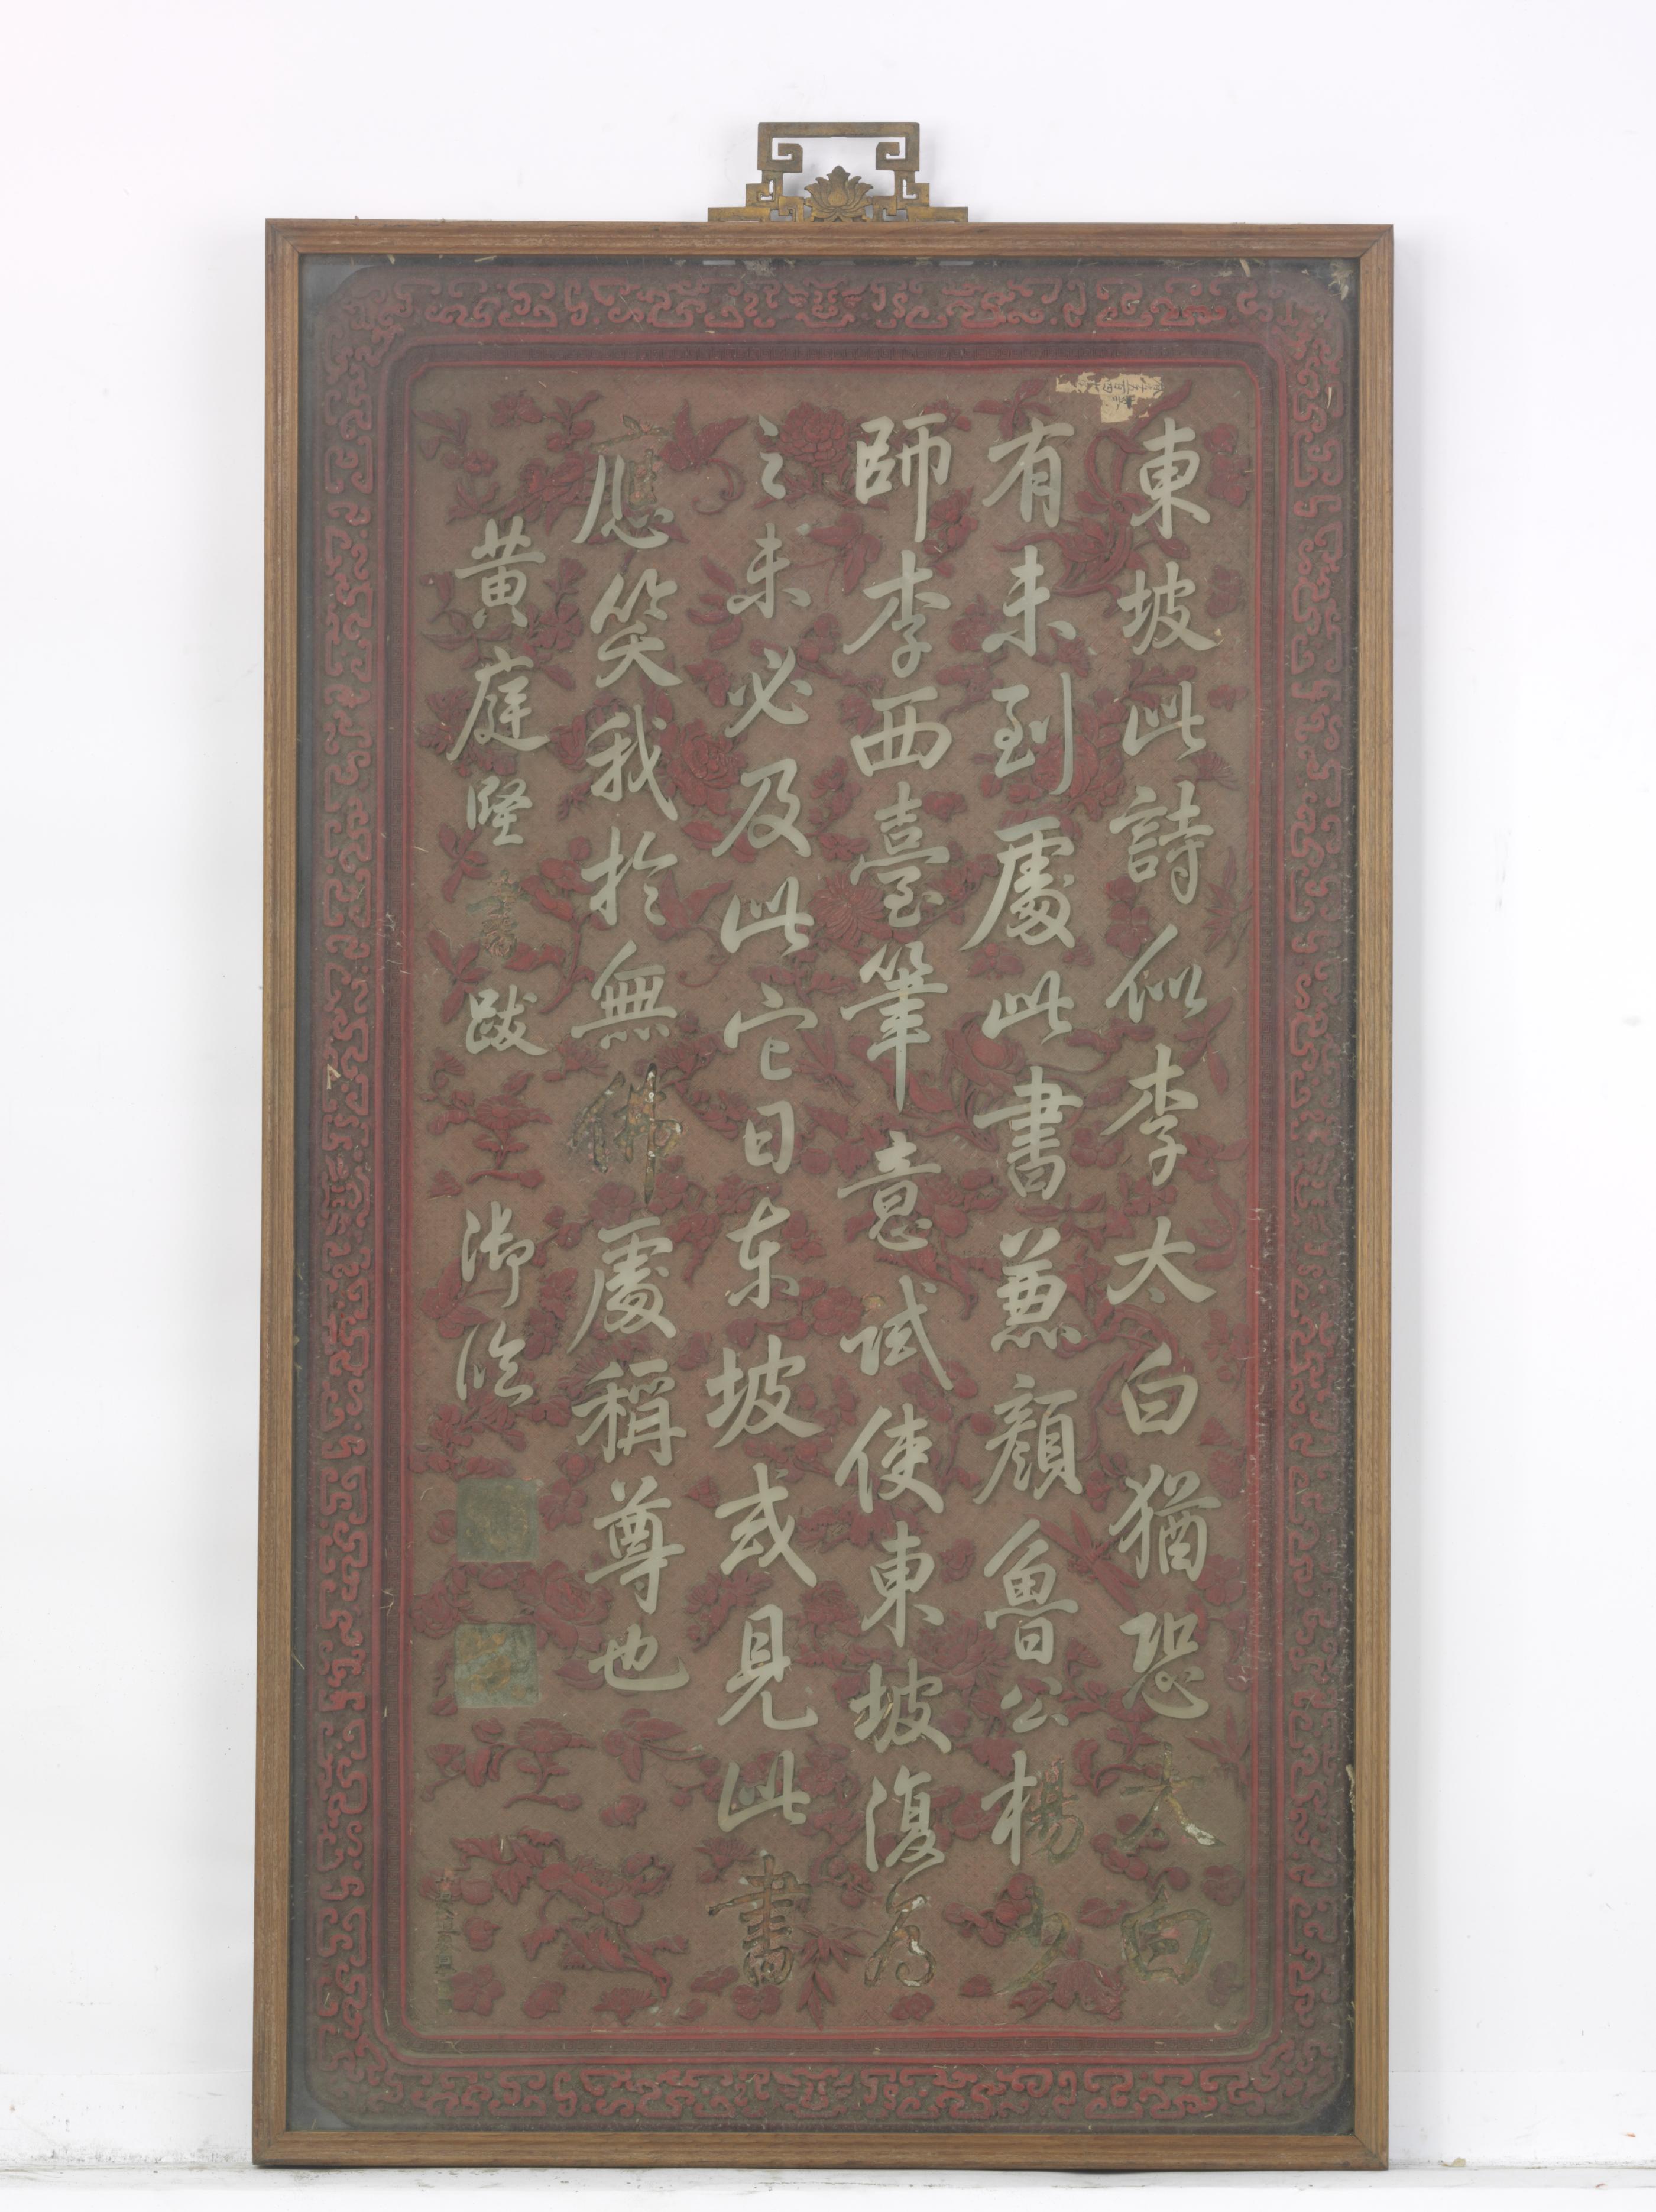 東坡此詩似李太白猶恐太白
有未到處此書兼顏魯公楊少
師李西臺筆意試使東坡復為
之未必及此它日东坡或見此書
應笑我於無佛處稱尊也
黄庭堅書跋 御臨